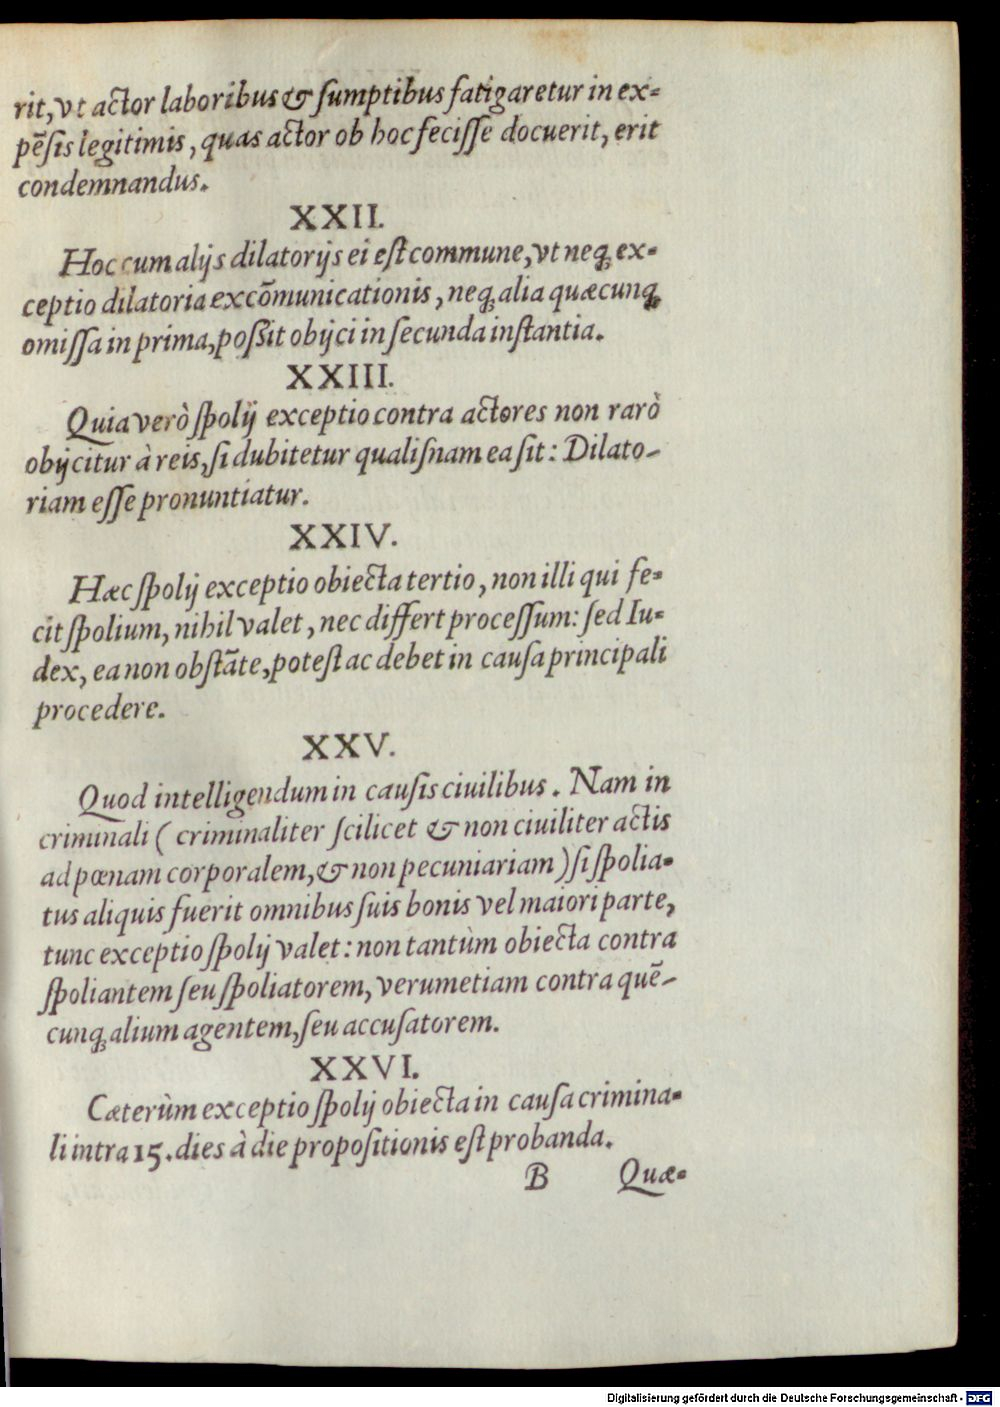 rit, vt actor laboribus & ſumptibus fatigaretur in ex-
pẽſis legitimis, quas actor ob hoc feciſſe docuerit, erit
condemnandus.
XXII.
Hoc cum alijs dilatorijs ei eſt commune, vt neq; ex-
ceptio dilatoria excõmunicationis, neq; alia quæcunq;
omiſſa in prima, poßit obijci in ſecunda inſtantia.
XXIII.
Quia verò ſpolij exceptio contra actores non rarò
obijcitur à reis, ſi dubitetur qualiſnam ea ſit: Dilato-
riam eſſe pronuntiatur.
XXIV.
Hæc ſpolij exceptio obiecta tertio, non illi qui fe-
cit ſpolium, nihil valet, nec differt proceſſum: ſed Iu-
dex, ea non obſtãte, poteſt ac debet in cauſa principali
procedere.
XXV.
Quod intelligendum in cauſis ciuilibus. Nam in
criminali (criminaliter ſcilicet & non ciuiliter actis
ad pœnam corporalem, & non pecuniariam) ſi ſpolia-
tus aliquis fuerit omnibus ſuis bonis vel maiori parte,
tunc exceptio ſpolij valet: non tantùm obiecta contra
ſpoliantem ſeu ſpoliatorem, verumetiam contra quẽ-
cunq; alium agentem, ſeu accuſatorem.
XXVI.
Cæterùm exceptio ſpolij obiecta in cauſa crimina-
li intra 15. dies à die propoſitionis eſt probanda.
B Quæ-
Digitalisierung gefördert durch die Deutsche Forschungsgemeinschaft - DFG